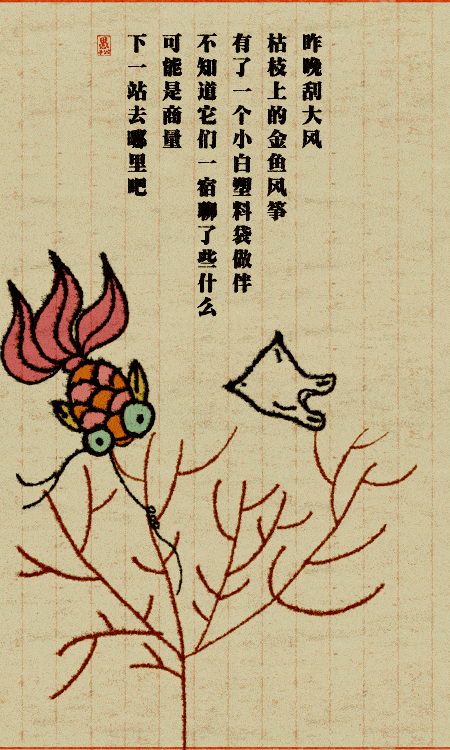 昨晚刮大风
枯枝上的金鱼风筝
有了一个小白塑料袋做伴
不知道它们一宿聊了些什么
可能是商量
下一站去哪里吧